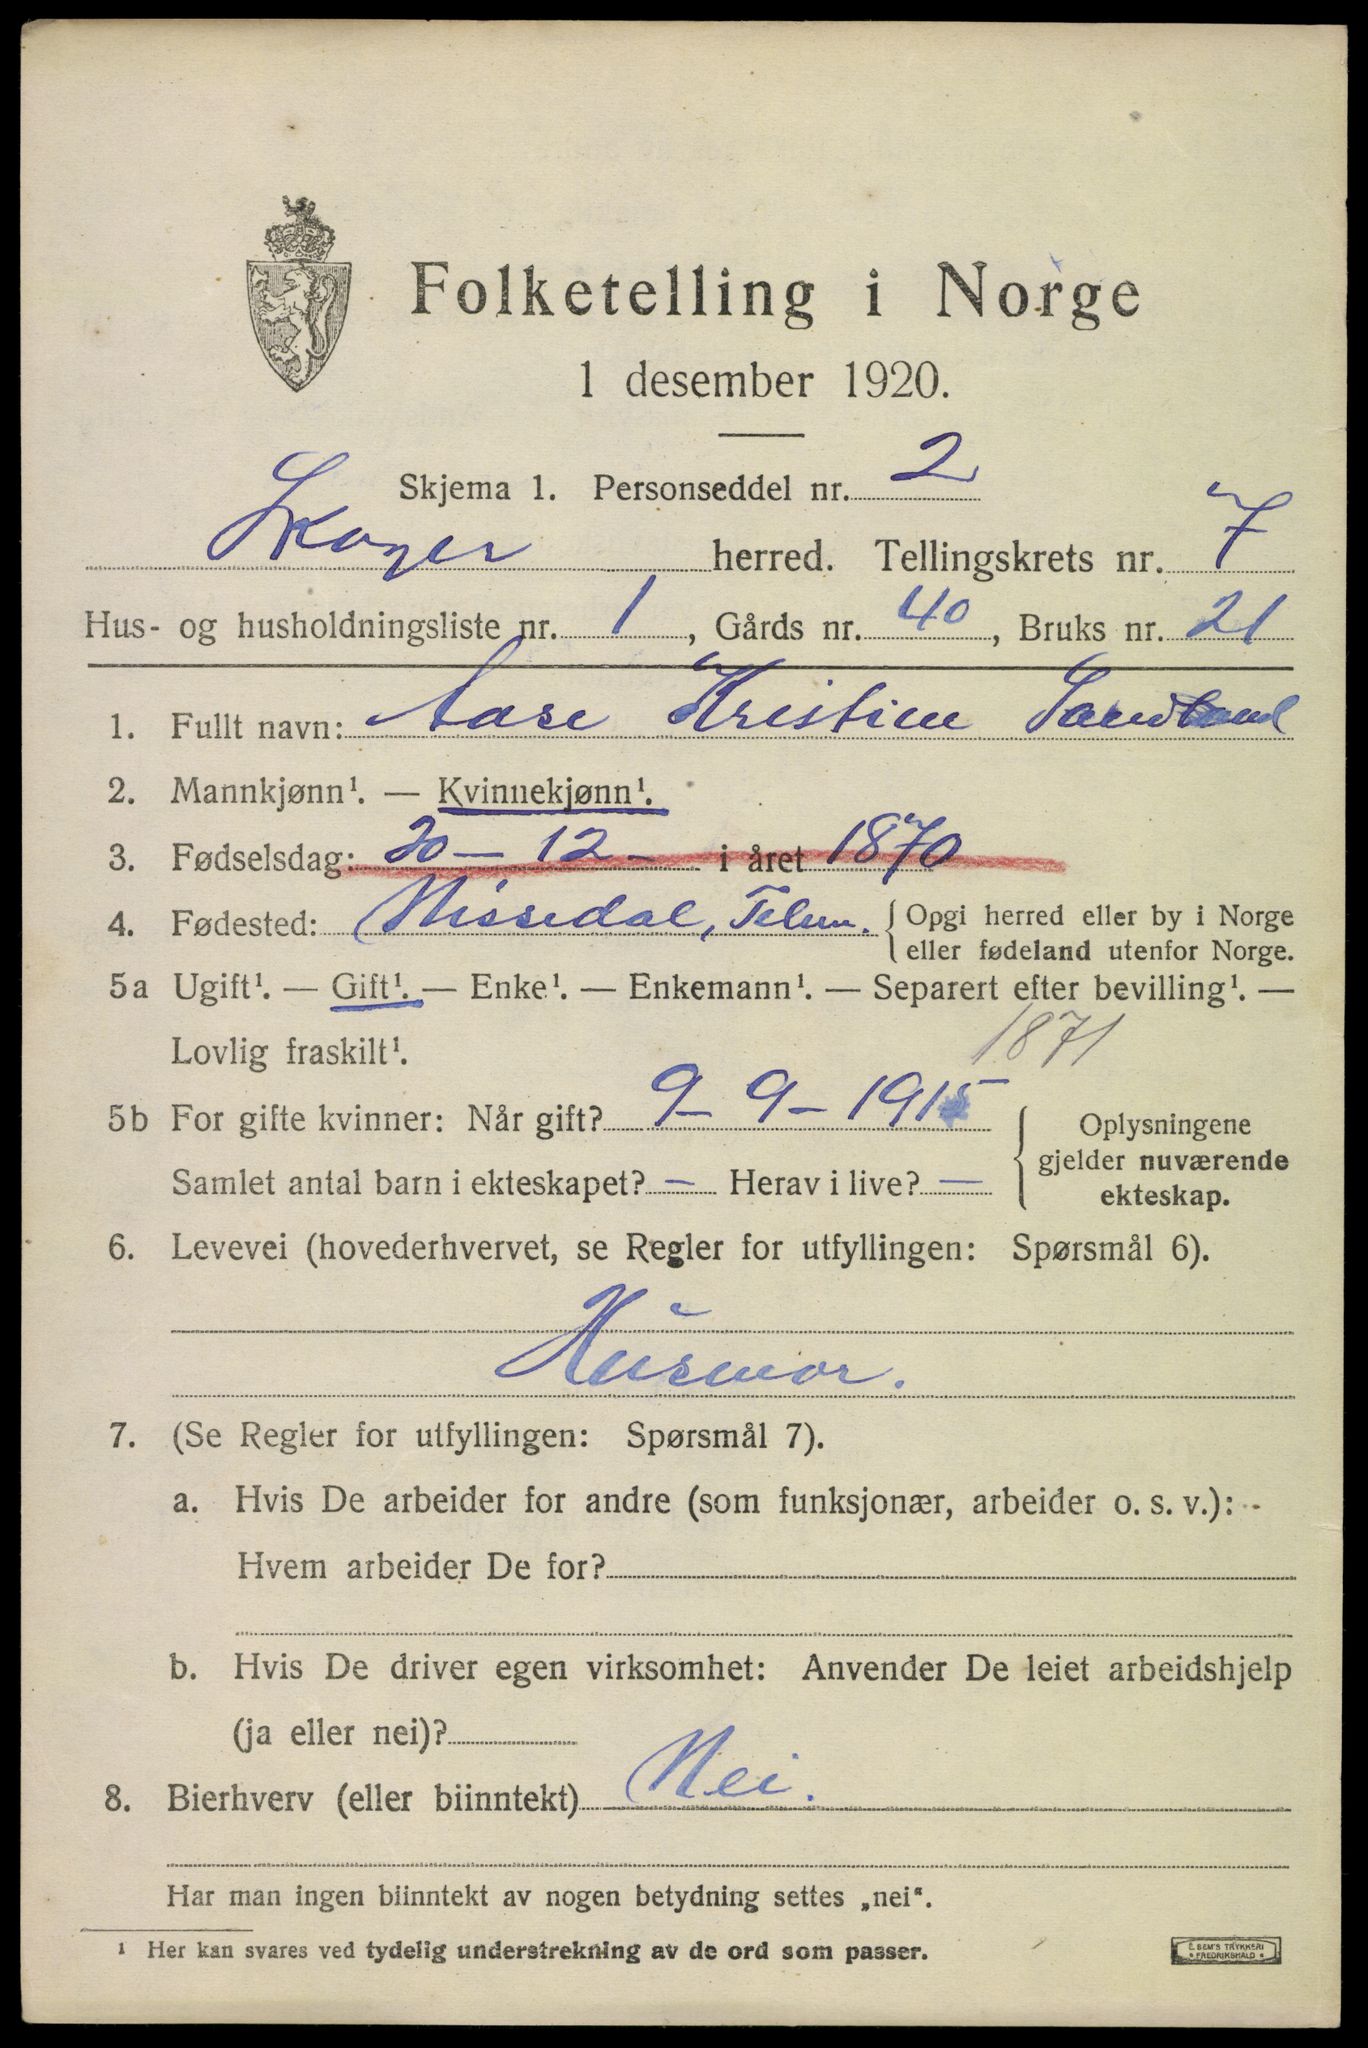 Folketelling i Norge
1 desember 1920.
Skjema 1. Personseddel nr. 2
Skoger herred. Tellingskrets nr. 7
Hus- og husholdningsliste nr. 1, Gårds nr. 40, Bruks nr. 21
1. Fullt navn: Aase Kristine
2. Mannkjønn¹. — Kvinnekjønn¹.
3. Fødselsdag: 20 - 12 - i året 1870
4. Fødested: Nissedal, Telem. { Opgi herred eller by i Norge
eller fødeland utenfor Norge.
5a Ugift¹. — Gift¹. — Enke¹. — Enkemann¹. — Separert efter bevilling¹. —
Lovlig fraskilt¹. 1871
5b For gifte kvinner: Når gift? 9 - 9 - 1915 { Oplysningene
gjelder nuværende
Samlet antal barn i ekteskapet? — Herav i live? — ekteskap.
6. Levevei (hovederhvervet, se Regler for utfyllingen: Spørsmål 6).
Husmor.
7. (Se Regler for utfyllingen: Spørsmål 7).
a. Hvis De arbeider for andre (som funksjonær, arbeider o. s. v.):
Hvem arbeider De for?
b. Hvis De driver egen virksomhet: Anvender De leiet arbeidshjelp
(ja eller nei)?
8. Bierhverv (eller biinntekt) Nei.
Har man ingen biinntekt av nogen betydning settes „nei“.
¹ Her kan svares ved tydelig understrekning av de ord som passer.
E. SEM'S TRYKKERI
* FREDRIKSHALD *